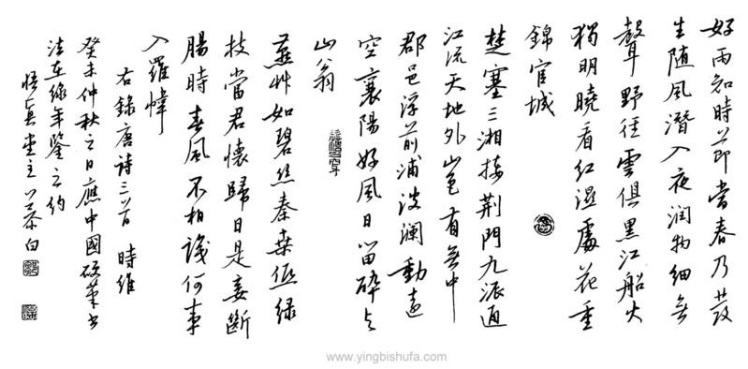 好雨知時節當春乃發
生随風潛入夜润物細無
聲野径雲俱黑江船火
獨明曉看红濕處花重
錦官城
楚塞三湘接荆門九派通
江流天地外山色有無中
郡邑浮前浦波澜動遠
空襄陽好風日留醉与
山翁
燕艸如碧丝秦桑低绿
枝當君懷歸日是妾斷
腸時春風不相識何事
入羅幃
右錄唐诗三首 時維
癸未仲秋之日應中國硬筆书
法在線年鉴之约
悟真堂主
www.yingbishufa.com